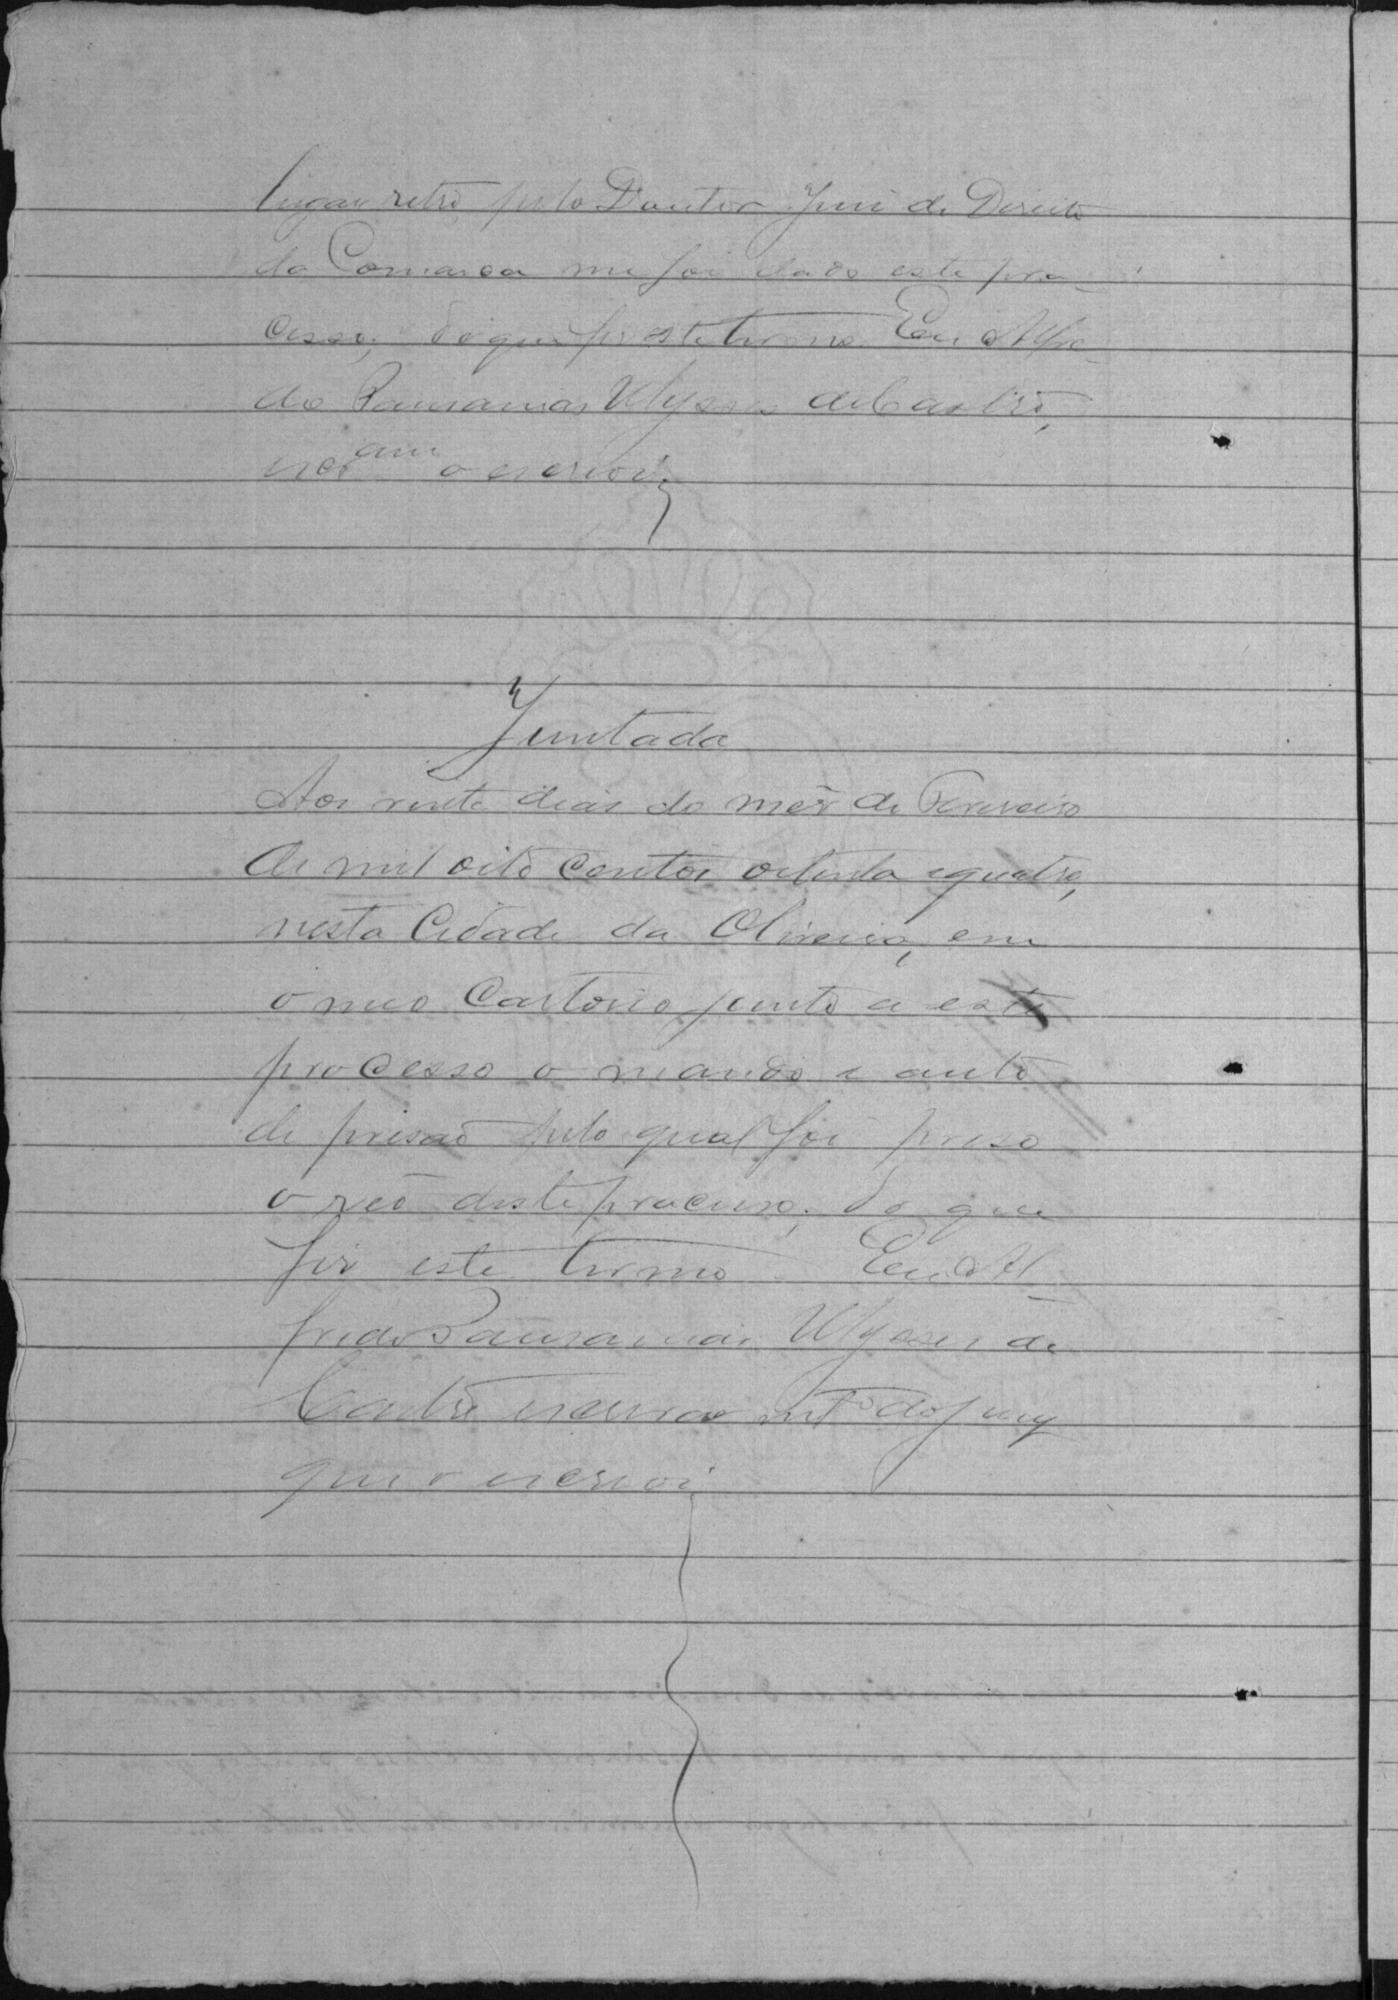 lugar retro pelo Doutor Juiz de Direito
da Comarca me foi dado este pro-
cesso, do que fiz este termo. Eu Alfre-
do Pausanias Ulysses de Castro,
o escrevi.
Juntada
Aos vinte dias do mês de Fevereiro
de mil oito centos oitenta e quatro,
nesta Cidade da Oliveira, em
o meo Cartorio junto a este
processo o mando e auto
de prisaõ pelo qual foi preso
o reo deste processo; do que
fiz este termo. Eu Al-
fredo Pausanias Ulysses de
Castro escrivaõ int.º do Jury
que o escrevi